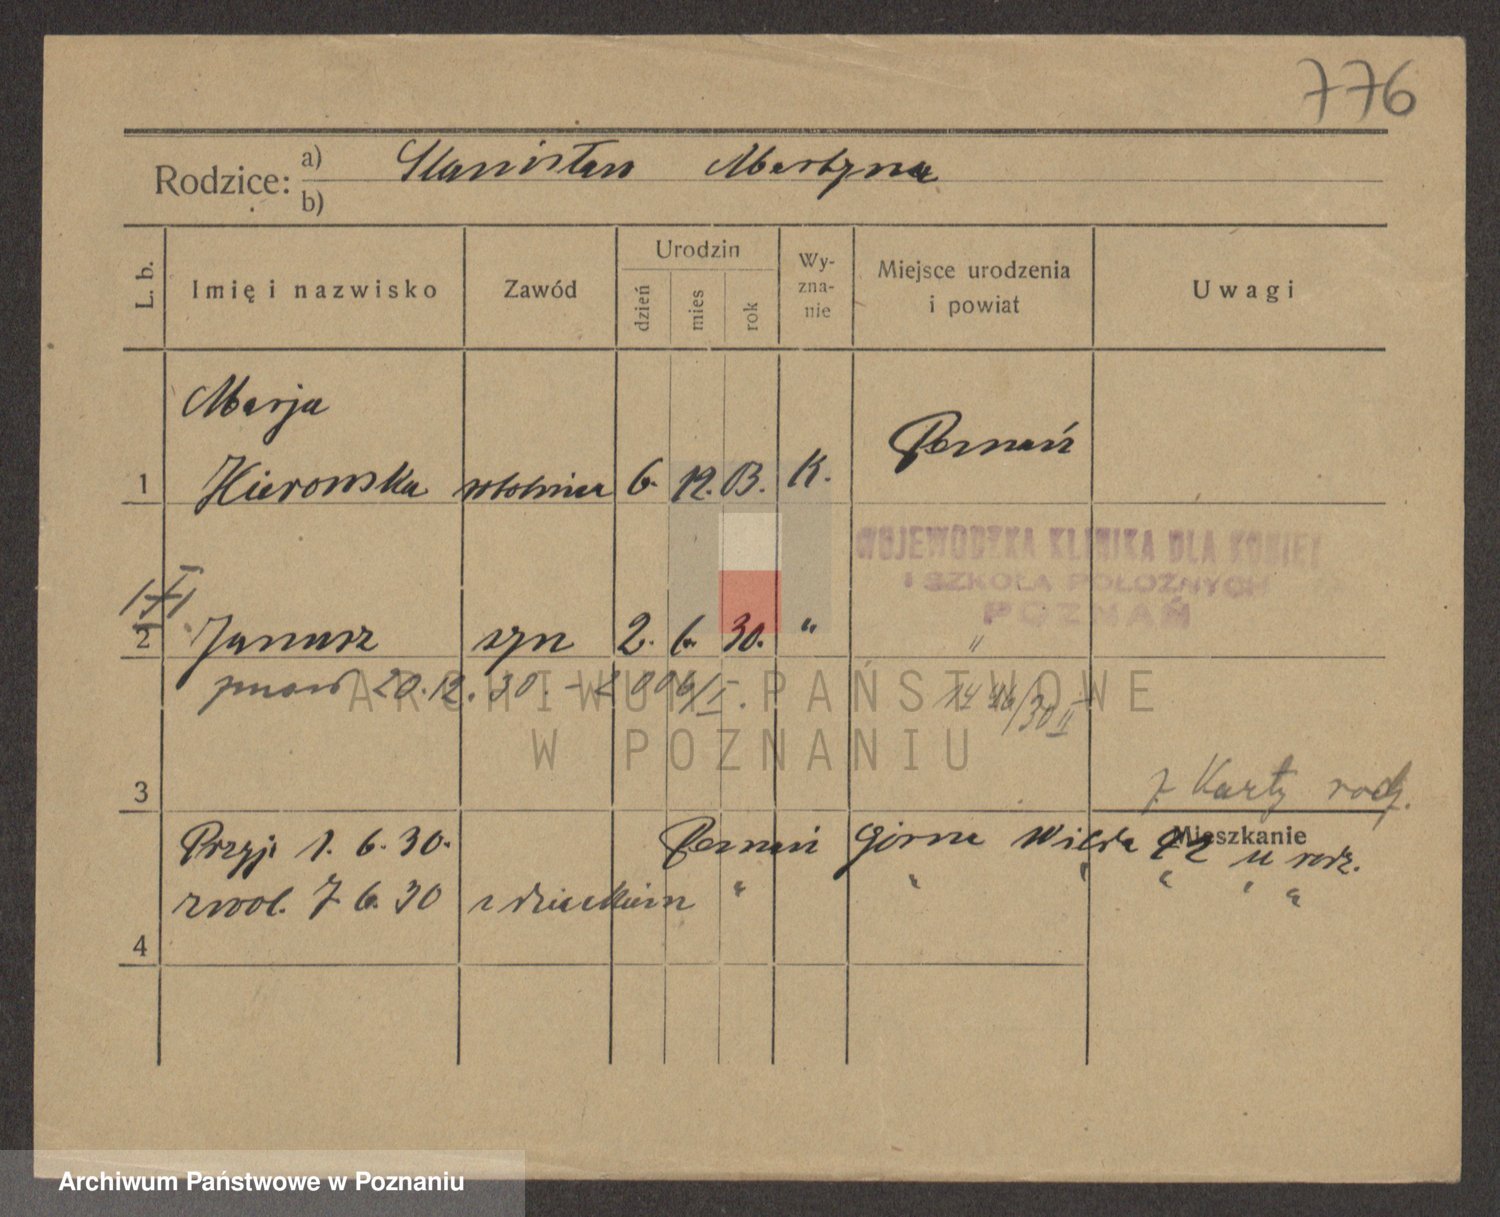 776
Rodzice: a) Stanisław Martyna
b)
L. b. Imię i nazwisko Zawód Urodzin dzień mies rok Wy-zna-nie Miejsce urodzenia i powiat Uwagi
Marja
1 Hierowska robotnica 6. 12. 03. K. Poznań
WOJEWÓDZKA KLINIKA DLA KOBIET
I SZKOŁA POŁOŻNYCH
POZNAŃ
2 Janusz syn 2. 6. 30. " "
20. 12. 30.
ARCHIWUM PAŃSTWOWE
W POZNANIU
3 z Karty rodz.
Mieszkanie
Przyj. 1. 6. 30. Poznań Górna Wilda 92 u rodz.
zwol. 7 6. 30 z dzieckiem " " " " " "
4
Archiwum Państwowe w Poznaniu